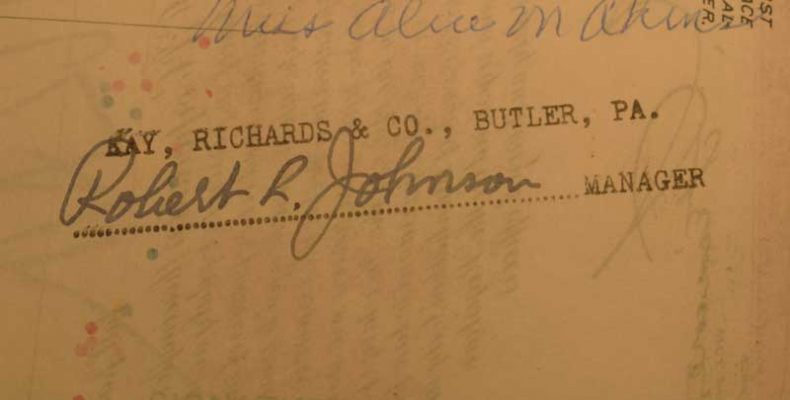 Miss Alice M Akins
KAY, RICHARDS & CO., BUTLER, PA.
Robert R. Johnson MANAGER